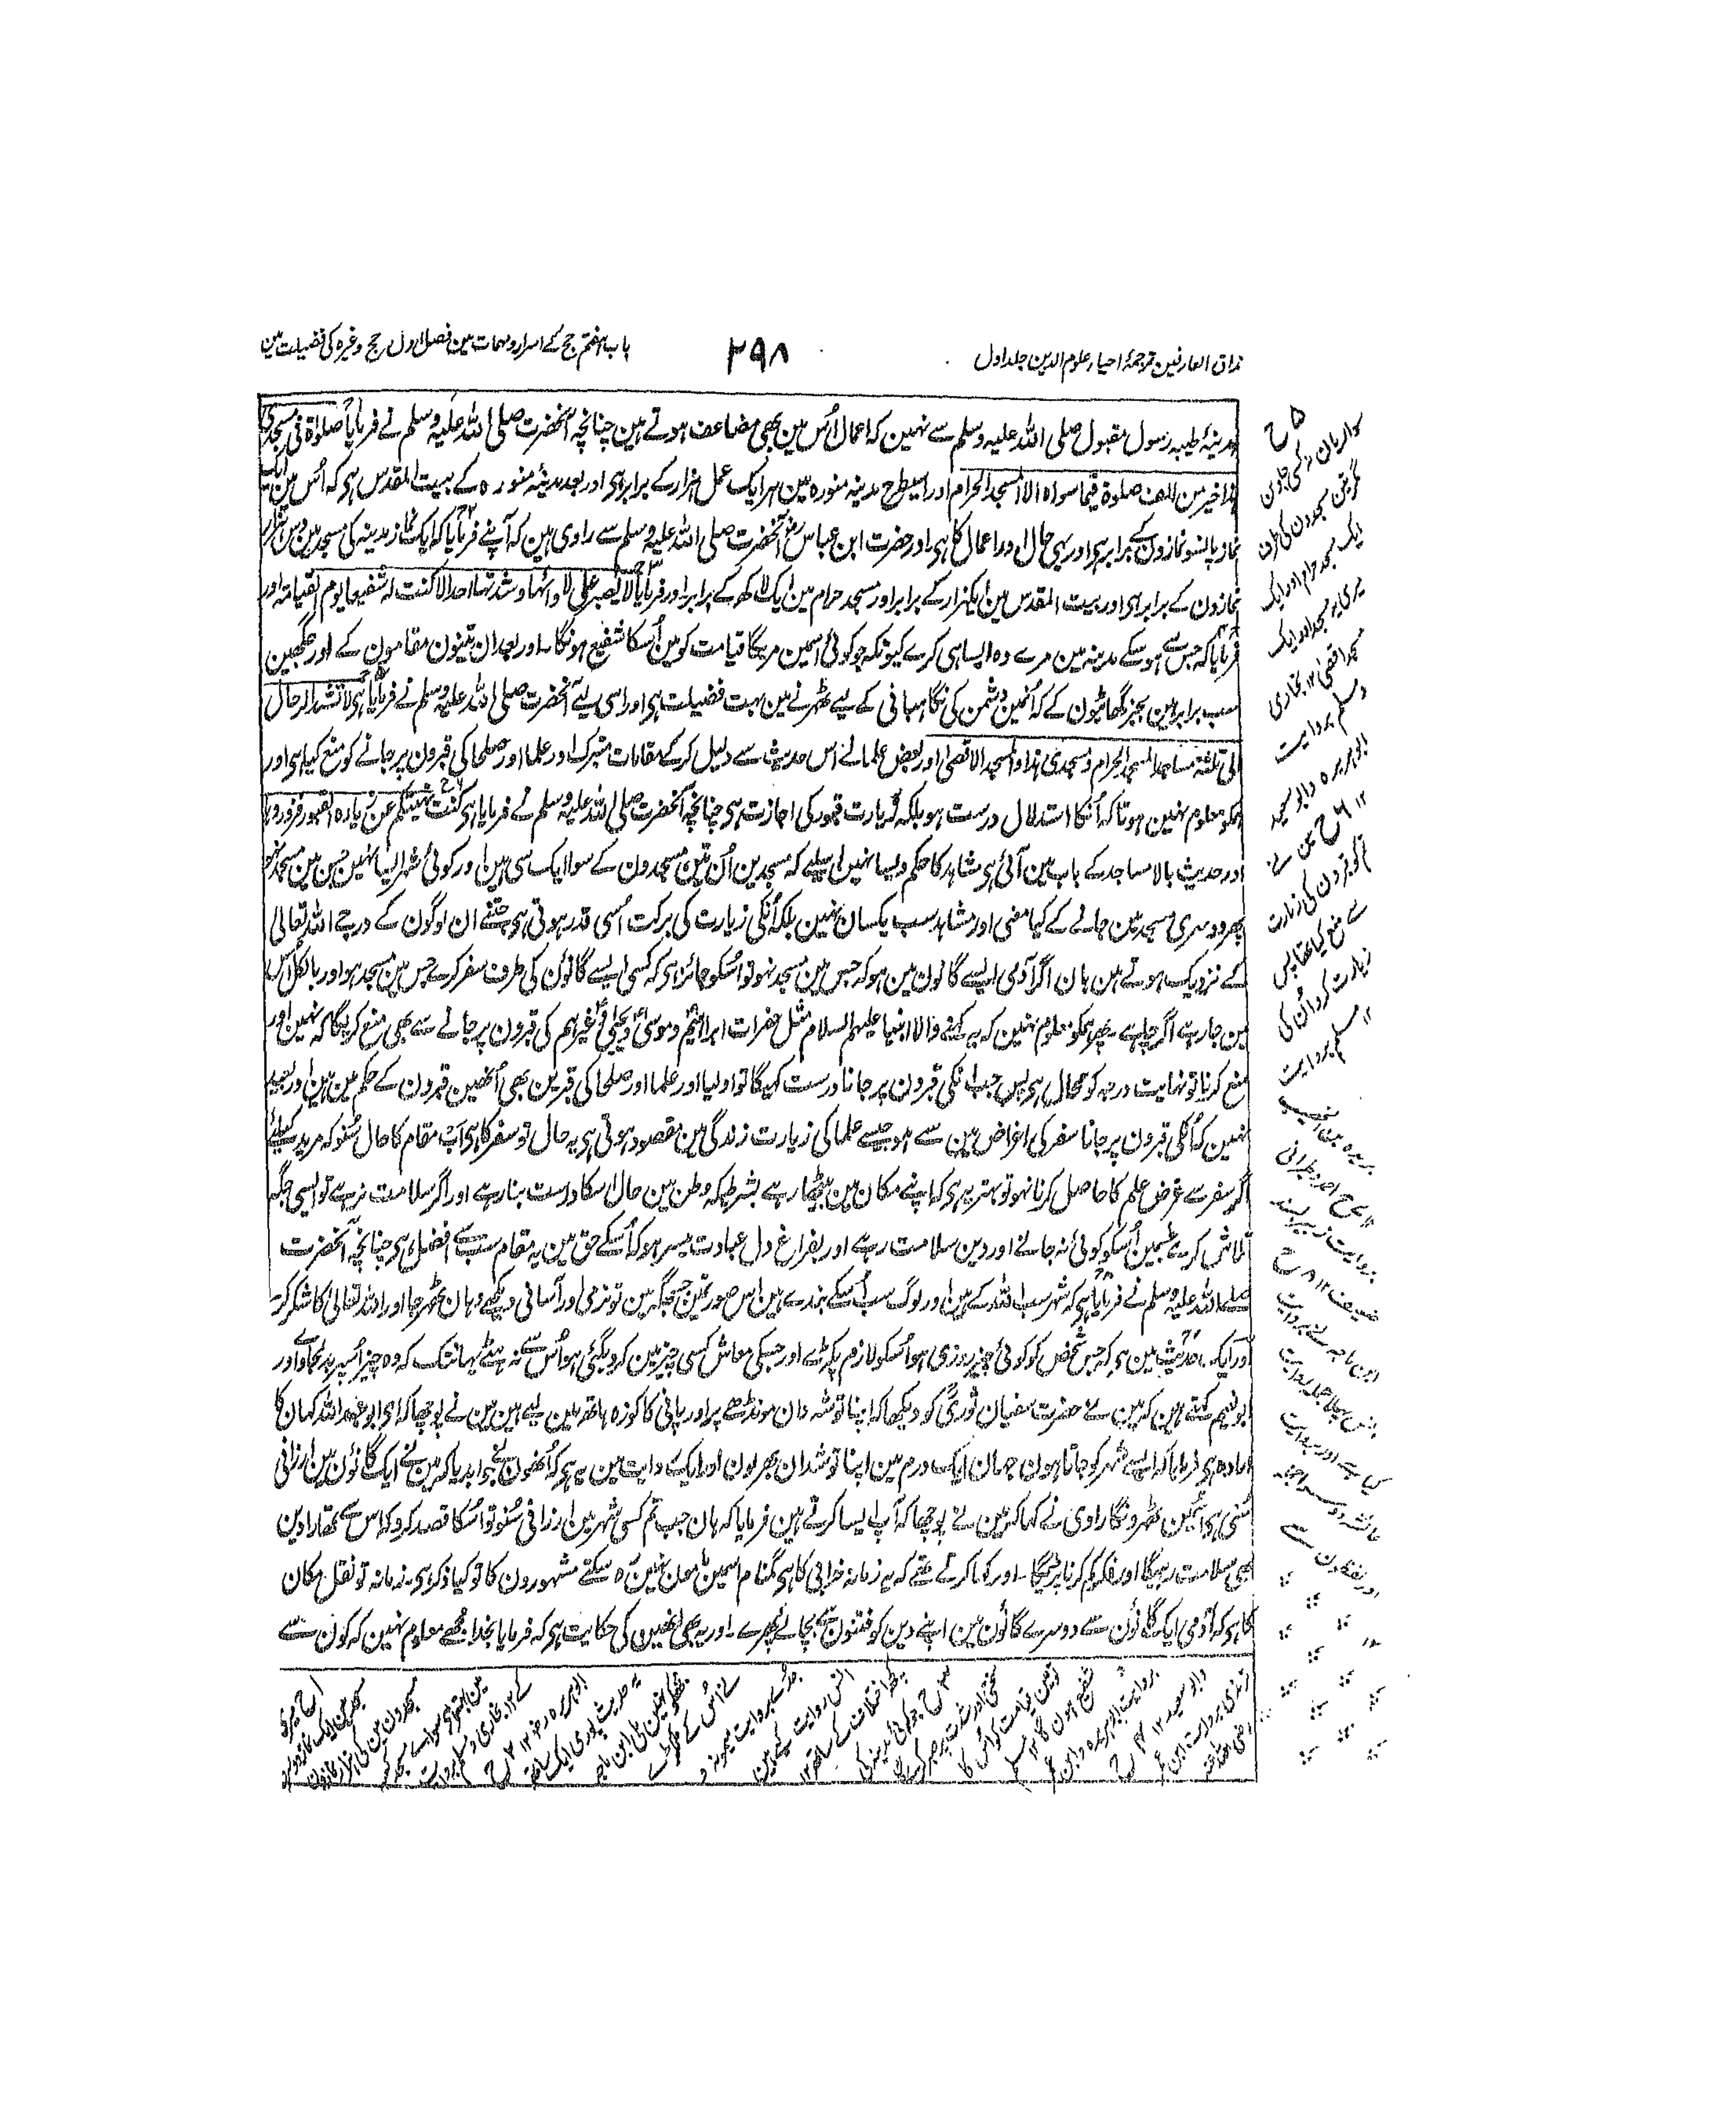 مذاق العارفین ترجمۂ احیاء علوم الدین جلد اول
۲۹۸
باب ہفتم حج کے اسرار ومہمات مین فصل اول حج وغیرہ کی فضیلت مین
مدینۂ طیبہ رسول مقبول صلی اللہ علیہ وسلم سے نہین کہ اعمال اُس مین بھی مضاعف ہوتے ہین چنانچہ آنحضرت صلی اللہ علیہ وسلم نے فرمایا صلوٰۃ فی مسجدی
ہذا خیر من الف صلوۃ فیما سواہ الا المسجد الحرام اور اسیطرح مدینہ منورہ مین ہر ایک عمل ہزار کے برابر ہی اور بعد مدینۂ منورہ کے بیت المقدس ہی کہ اُس مین ایک
نماز پانسو نمازون کے برابر ہی اور یہی حال اور اعمال کا ہی اور حضرت ابن عباس رض آنحضرت صلی اللہ علیہ وسلم سے راوی ہین کہ آپنے فرمایا کہ ایک نماز مدینہ کی مسجد مین دس ہزار
نمازون کے برابر ہی اور بیت المقدس مین ایکہزار کے برابر اور مسجد حرام مین ایک لاکھ کے برابر اور فرمایا لا یصبر علی لاوائہا وشدتہا احد الا کنت لہ شفیعا یوم القیامۃ اور
فرمایا کہ جس سے ہو سکے مدینہ مین مرے وہ ایسا ہی کرے کیونکہ جو کوئی اسمین مریگا قیامت کو مین اُسکا شفیع ہونگا۔ اور بعد ان تینون مقامون کے اور جگہین
سب برابر ہین بجز گھاٹیون کے کہ اُنمین دشمن کی نگاہبانی کے لیے ٹھرنے مین بہت فضیلت ہی اور اسی لیے آنحضرت صلی اللہ علیہ وسلم نے فرمایا ہی لا تشد الرحال
الی ثلثۃ مساجد المسجد الحرام ومسجدی ہذا والمسجد الاقصیٰ اور بعض علمانے اس حدیث سے دلیل کرکے مقامات متبرک اور علما اور صلحا کی قبرون پر جانے کو منع کیا ہی اور
ہمکو معلوم نہین ہوتا کہ اُنکا استدلال درست ہو بلکہ زیارت قبور کی اجازت ہی چنانچہ آنحضرت صلی اللہ علیہ وسلم نے فرمایا ہی کنت نہیتکم عن زیارۃ القبور فزوروہا
اور حدیث بالا مساجد کے باب مین آئی ہی مشاہد کا حکم ویسا نہین اسلیے کہ مسجدین اُن تین مسجدون کے سوا ایک سی ہین اور کوئی شہر ایسا نہین جس مین مسجد نہو
پھر دوسری مسجد مین جانے کے کیا معنی اور مشاہد سب یکسان نہین بلکہ اُنکی زیارت کی برکت اُسی قدر ہوتی ہی جتنے ان لوگون کے درجے اللہ تعالی
کے نزدیک ہوتے ہین ہان اگر آدمی ایسے گانون مین ہو کہ جس مین مسجد نہو تو اُسکو جائز ہی کہ کسی ایسے گانون کی طرف سفر کرے جس مین مسجد ہو اور بالکل اُس
مین جا رہے اگر چاہے۔ پھر ہمکو معلوم نہین کہ یہ کہنے والا انبیا علیہم السلام مثل حضرات ابراہیمؑ وموسیٰؑ ویحییٰؑ وغیرہم کی قبرون پر جانے سے بھی منع کریگا کہ نہین اور
منع کرنا تو نہایت درجہ کو محال ہی پس جب انکی قبرون پر جانا درست کہیگا تو اولیا اور علما اور صلحا کی قبرین بھی انھین قبرون کے حکم مین ہین اور بعید
نہین کہ اُنکی قبرون پر جانا سفر کی اغراض مین سے ہو جیسے علما کی زیارت زندگی مین مقصود ہوتی ہی یہ حال تو سفر کا ہی اب مقام کا حال سُنو کہ مرید کیلئے
اگر سفر سے غرض علم کا حاصل کرنا نہو تو بہتر یہ ہی کہ اپنے مکان مین بیٹھا رہے بشرطیکہ وطن مین حال اسکا درست بنا رہے اور اگر سلامت نرہے تو ایسی جگہ
تلاش کرے جسمین اُسکو کوئی نہ جانے اور دین سلامت رہے اور بفراغ دل عبادت میسر ہو کہ اُسکے حق مین یہ مقام سب سے افضل ہی چنانچہ آنحضرت
صلے اللہ علیہ وسلم نے فرمایا ہی کہ شہر سب اللہ کے ہین اور لوگ سب اُسکے بندے ہین اس صورتمین جس جگہ مین تو نرمی اور آسانی دیکھے وہان ٹھہر جا اور اللہ تعالیٰ کا شکر کر۔
اور ایک حدیث مین ہی کہ جس شخص کو کوئی چیز روزی ہو اُسکو لازم پکڑے اور جسکی معاش کسی چیز مین کردیگئی ہو اُس سے نہ ہٹے یہانتک کہ وہ چیز اُسپر بدلجاوے اور
ابو نعیم کہتے ہین کہ مین نے حضرت سفیان ثوریؒ کو دیکھا کہ اپنا توشہ دان مونڈھے پر اور پانی کا کوزہ ہاتھ مین لیے ہین مین نے پوچھا کہ ای ابو عبد اللہ کہان کا
ارادہ ہی فرمایا کہ ایسے شہر کو جاتا ہون جہان ایک درم مین اپنا توشہ دان بھر لون اور ایک روایت مین یہ ہی کہ اُنھون نے جواب دیا کہ مین نے ایک گانون مین ارزانی
سُنی ہی اُسمین ٹھہرونگا راوی نے کہا کہ مین نے پوچھا کہ آپ ایسا کرتے ہین فرمایا کہ ہان جب تم کسی شہر مین ارزانی سُنو تو اُسکا قصد کرو کہ اس سے تمھارا دین
بھی سلامت رہیگا اور فکر کم کرنا پڑیگا۔ اور کہا کرتے تھے کہ یہ زمانہ خرابی کا ہی گمنام اسمین مامون نہین رہ سکتے مشہورون کا تو کیا ذکر ہی۔ زمانہ تو نقل مکان
کا ہی کہ آدمی ایک گانون سے دوسرے گانون مین اپنے دین کو فتنون سے بچائے پھرے۔ اور یہ بھی انھین کی حکایت ہی کہ فرمایا بخدا مجھے معلوم نہین کہ کون سے
۵ ح
مگر تین مسجدون کی طرف
ایک مسجد حرام اور ایک
میری یہ مسجد اور ایک
مسجد اقصیٰ ۱۲ بخاری
ومسلم بروایت
ابو ہریرہ وابو سعید
تم کو قبرون کی زیارت
سے منع کیا تھا پس
زیارت کرو اُن کی
۱۲ مسلم بروایت
بریدہ بن الخصیب
۷ ح احمد وطبرانی
بروایت زبیر بسند
ضعیف ۱۲ ۸ ح
ابن ماجہ نے بروایت